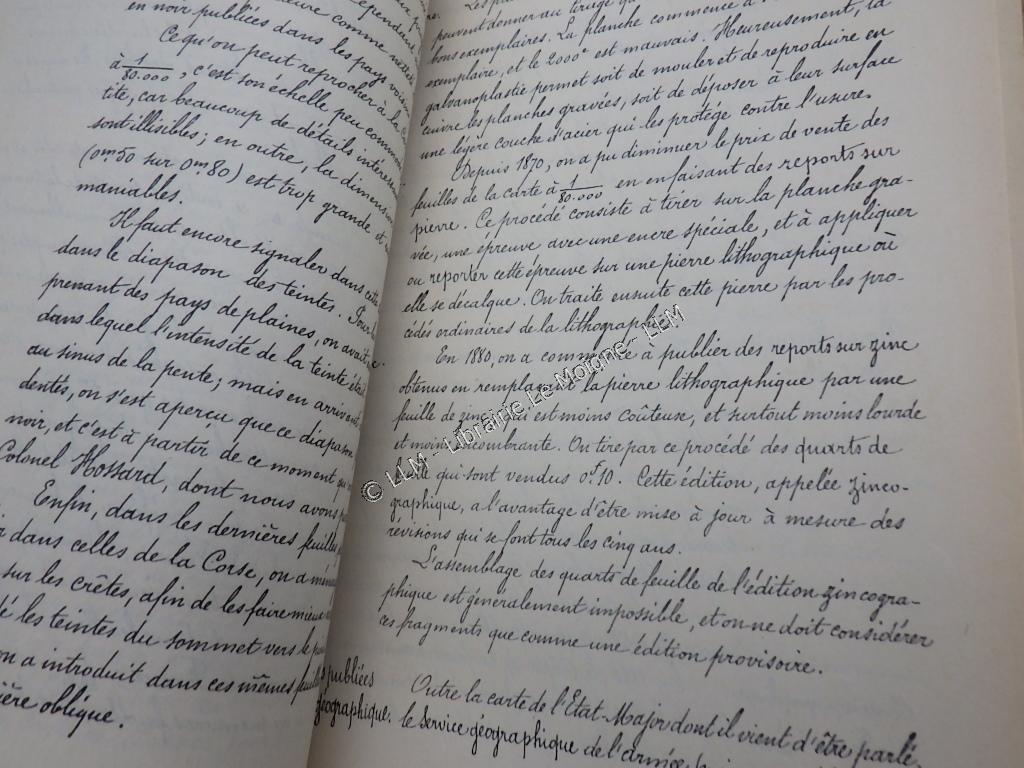 en noir publiées dans les pays voisin
Ce qu'on peut reprocher à la
à 1/80.000, c'est son échelle peu comm
tite, car beaucoup de détails intéres
sont illisibles; en outre, la dimension
(0m50 sur 0m80) est trop grande et
maniables.
Il faut encore signaler dans cette
dans le diapason des teintes. Pour
prenant des pays de plaines, on avait
dans lequel l'intensité de la teinte éta
au sinus de la pente; mais en arrivant
dentés, on s'est aperçu que ce diapason
noir, et c'est à partir de ce moment qu
Colonel Hossard, dont nous avons
Enfin, dans les dernières feuilles
dans celles de la Corse, on a
sur les crêtes, afin de les faire mieux
les teintes du sommet vers le
on a introduit dans ces mêmes feuill
ière oblique.
peuvent donner au tirage qu
bons exemplaires. La planche commence à
exemplaire, et le 2000e est mauvais. Heureusement, la
galvanoplastie permet soit de mouler et de reproduire en
cuivre les planches gravées, soit de déposer à leur surface
une légère couche d'acier qui les protège contre l'usure.
Depuis 1870, on a pu diminuer le prix de vente des
feuilles de la carte à 1/80.000 en en faisant des reports sur
pierre. Ce procédé consiste à tirer sur la planche gra-
vée, une épreuve avec une encre spéciale, et à appliquer
ou reporter cette épreuve sur une pierre lithographique où
elle se décalque. On traite ensuite cette pierre par les pro-
cédés ordinaires de la lithographie.
En 1880, on a commencé à publier des reports sur zinc
obtenus en remplaçant la pierre lithographique par une
feuille de zinc qui est moins coûteuse, et surtout moins lourde
et moins encombrante. On tire par ce procédé des quarts de
feuille qui sont vendus 0f10. Cette édition, appelée zinco-
graphique, a l'avantage d'être mise à jour à mesure des
révisions qui se font tous les cinq ans.
L'assemblage des quarts de feuille de l'édition zincogra-
phique est généralement impossible, et on ne doit considérer
ces fragments que comme une édition provisoire.
s publiées
géographique.
Outre la carte de l'Etat-Major dont il vient d'être parlé,
le Service géographique de l'armée,
© LLM - Librairie Le Moigne - LLM